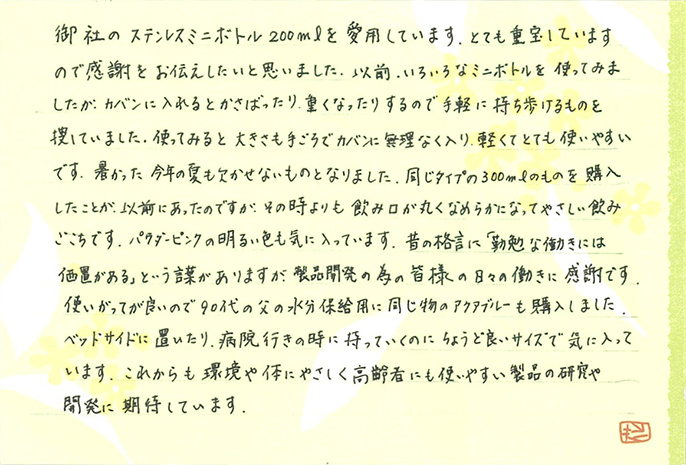 御社の ステンレスミニボトル200mlを愛用しています.とても重宝しています
ので感謝をお伝えしたいと思いました.以前,いろいろなミニボトルを使ってみま
したが,カバンに入れるとかさばったり,重くなったりするので手軽に持ち歩けるものを
捜していました.使ってみると大きさも手ごろでカバンに無理なく入り,軽くてとても使いやすい
です.暑かった今年の夏も欠かせないものとなりました.同じタイプの300mlのものを購入
したことが,以前にあったのですが,その時よりも飲み口が丸くなめらかになってやさしい飲み
ごこちです.パウダーピンクの明るい色も気に入っています.昔の格言に「勤勉な働きには
価置がある」という言葉がありますが,製品開発の為の皆様の日々の働きに感謝です.
使いがってが良いので90代の父の水分保給用に同じ物のアクアブルーも購入しました.
ベッドサイドに置いたり,病院行きの時に持っていくのにちょうど良いサイズで気に入って
います.これからも環境や体にやさしく高齢者にも使いやすい製品の研究や
開発に期待しています.